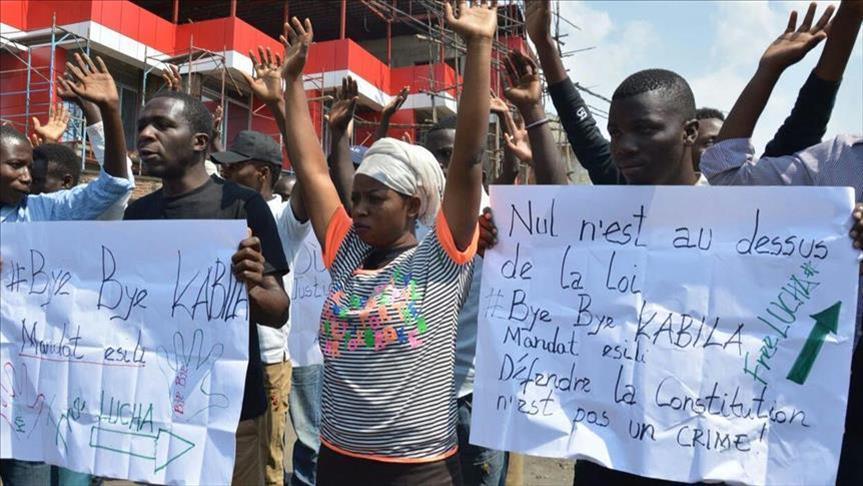 #Bye Bye KABILA
Mandat esili
Bye
Bye
LUCHA
Justic
Nul n'est au dessus
de la loi
#Bye Bye KABILA
Mandat esili
Défendre la Constitution
n'est pas un CRIME!
Free LUCHA#